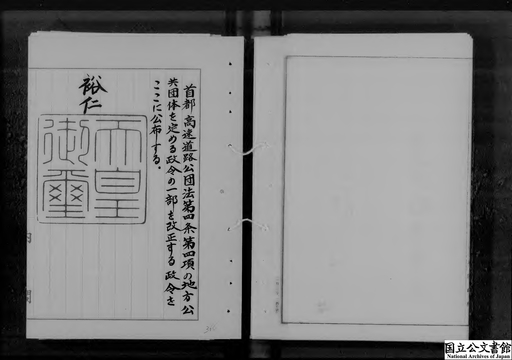 首都高速道路公団法第四条第四項の地方公
共団体を定める政令の一部を改正する政令を
ここに公布する。
裕仁
天皇
御璽
国立公文書館
National Archives of Japan